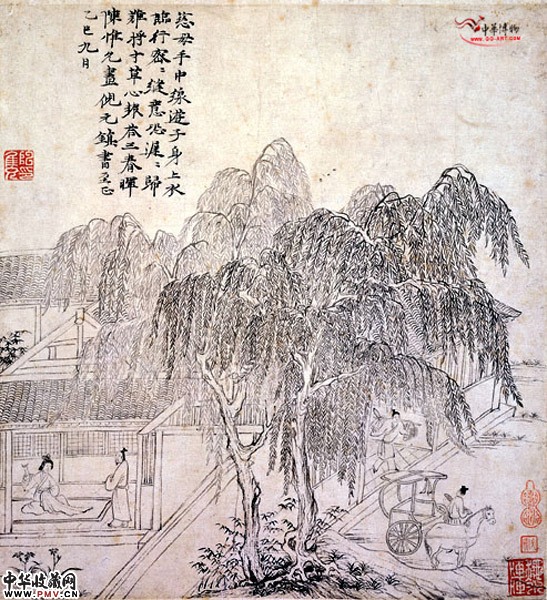 慈母手中線遊子身上衣
臨行密〻縫意恐遲〻歸
難將寸草心報答三春暉
陳惟允畫倪元鎮書至正
乙巳九月
中華博物
WWW.GG-ART.COM
中华收藏网
www.PMV.CN